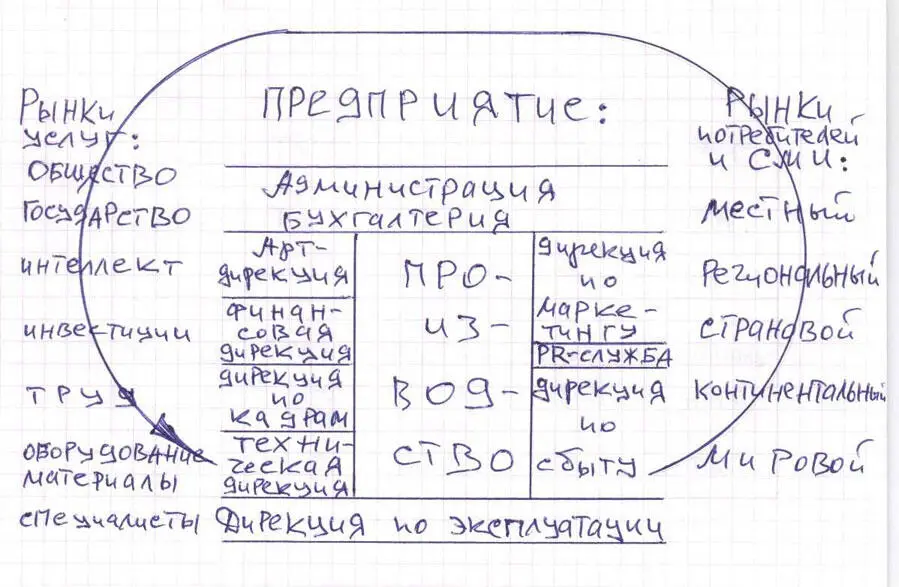 ПРЕДПРИЯТИЕ:
Рынки
услуг:
ОБЩЕСТВО
ГОСУДАРСТВО
интеллект
инвестиции
труд
оборудование
материалы
специалисты
Администрация
Бухгалтерия
Арт-
дирекция
финан-
совая
дирекция
дирекция
по
кадрам
техни-
ческая
дирекция
ПРО-
ИЗ-
ВОД-
СТВО
дирекция
по
марке-
тингу
PR-служба
дирекция
по
сбыту
Дирекция по эксплуатации
Рынки
потребителей
и СМИ:
местный
региональный
страновой
континентальный
мировой